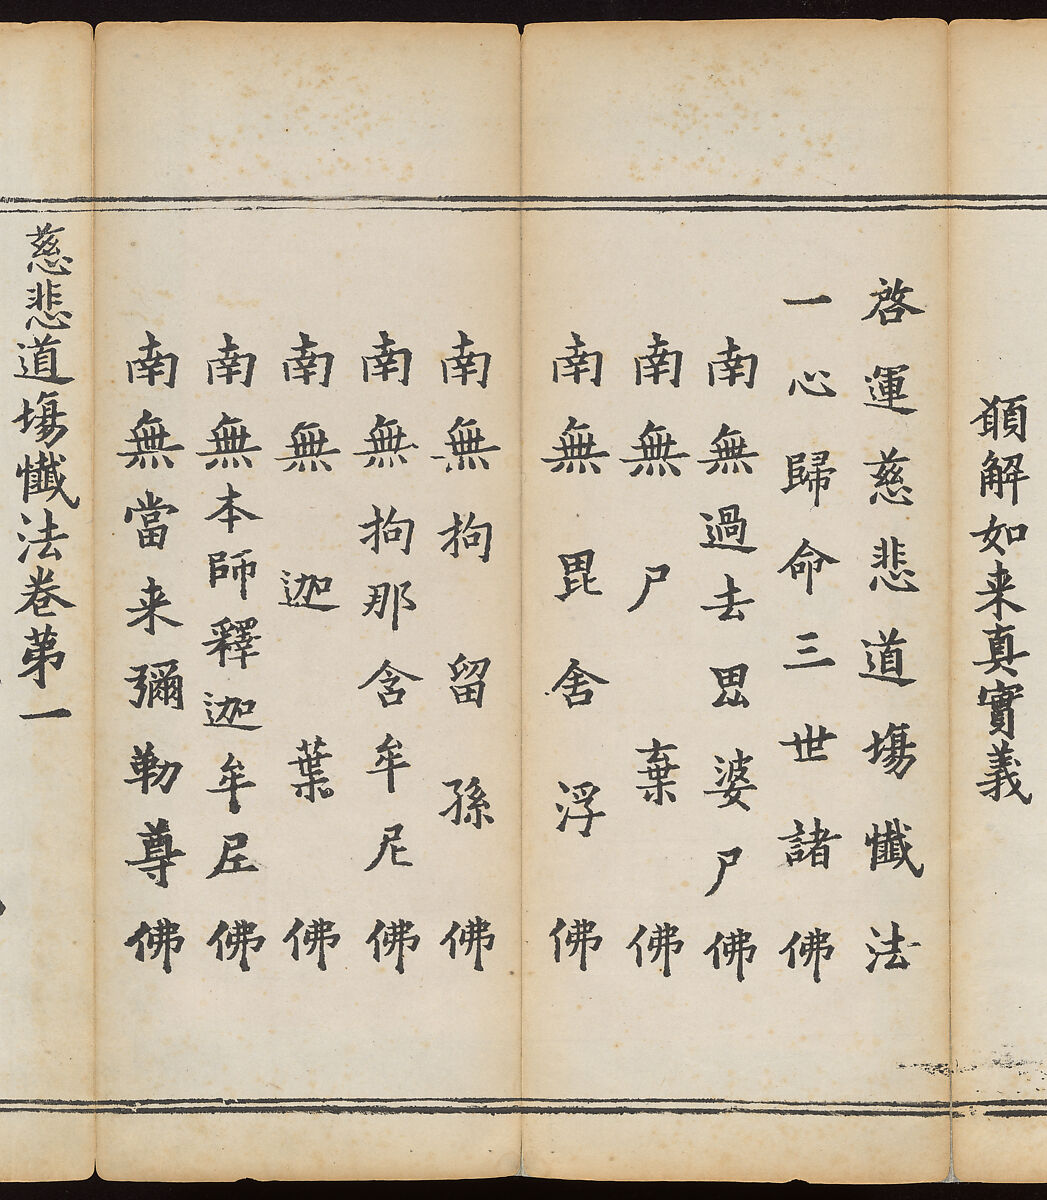 願解如来真實義
啓運慈悲道場懺法
一心歸命三世諸佛
南無過去毘婆尸佛
南無尸棄佛
南無毘舍浮佛
南無拘留孫佛
南無拘那含牟尼佛
南無迦葉佛
南無本師釋迦牟尼佛
南無當来彌勒尊佛
慈悲道場懺法卷第一